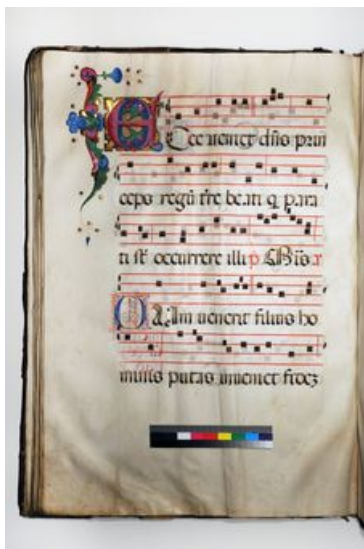 Ecce ueniet dñs prin
ceps regū t̄re beati q para
ti st̄ occurrere illi p
Cum uenerit filius ho
minis putas inueniet fidez